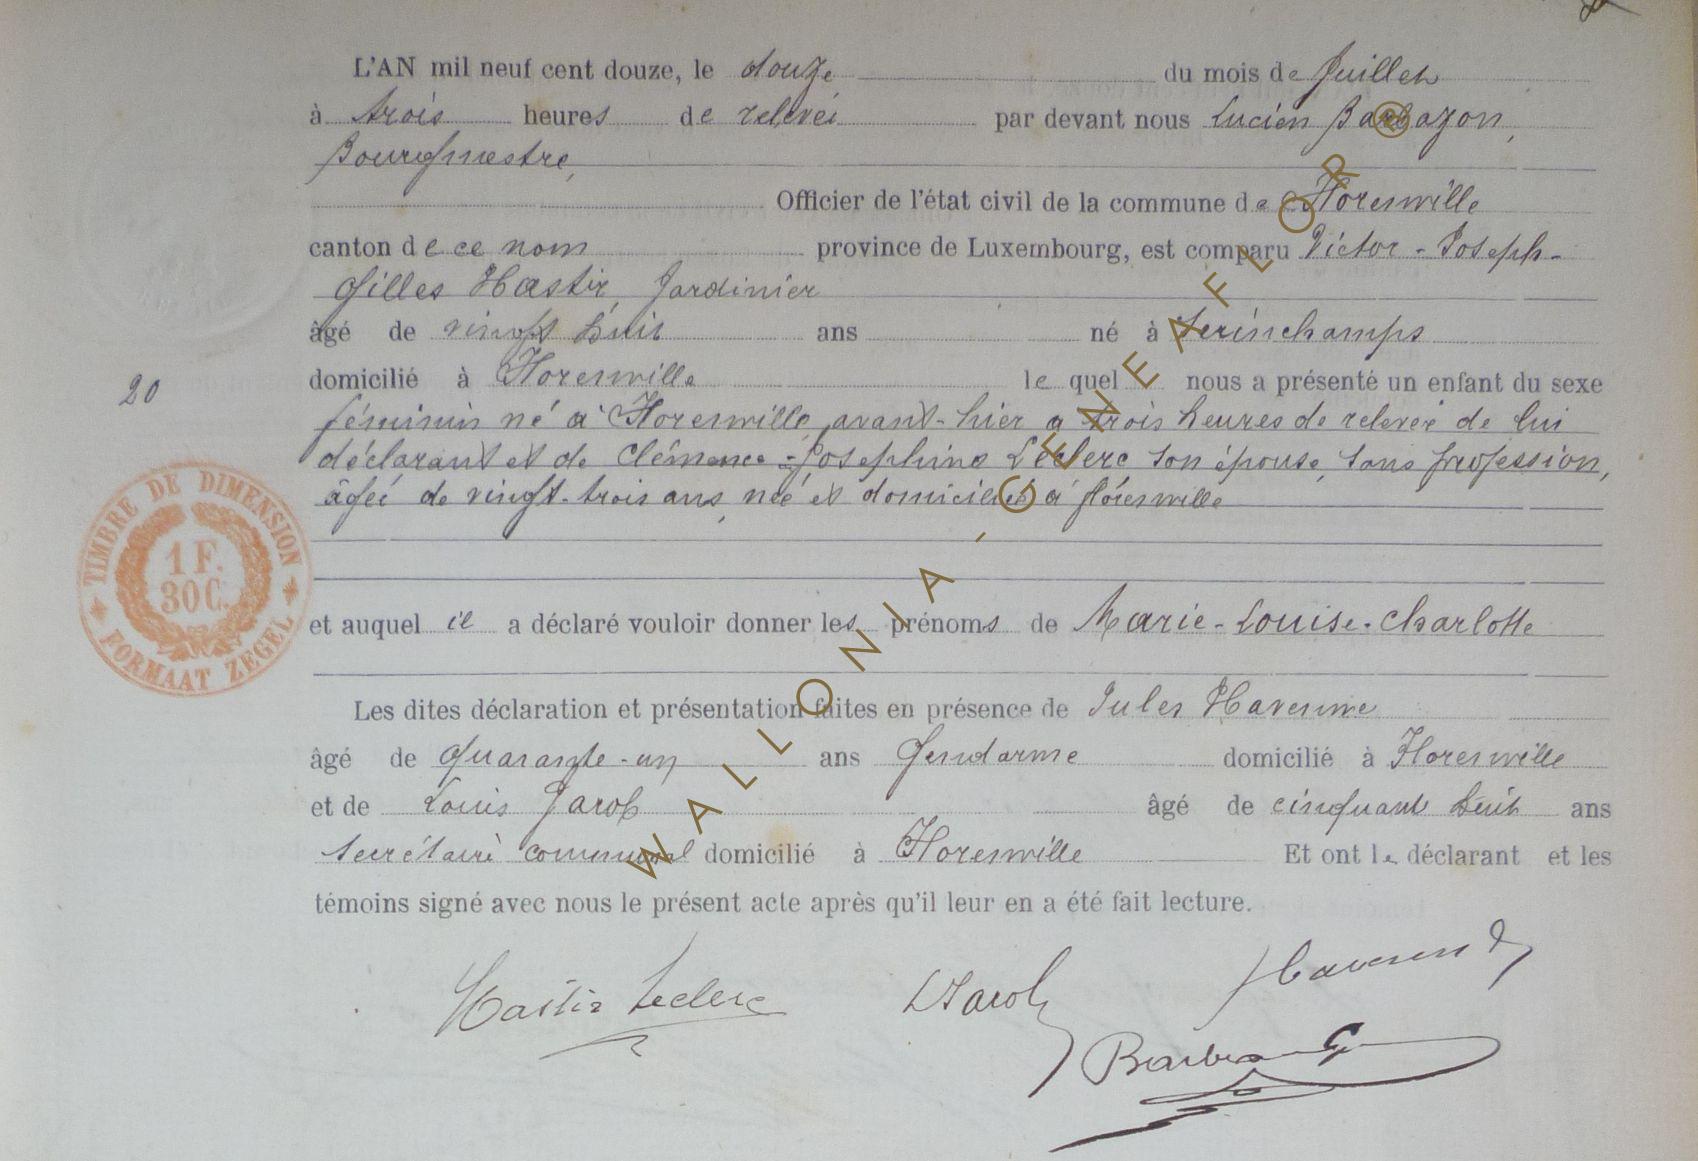 L'AN mil neuf cent douze, le douze du mois de Juillet
à trois heures de relevée par devant nous Lucien Barbazon,
Bourgmestre,
Officier de l'état civil de la commune de Florenville
canton de ce nom province de Luxembourg, est comparu Victor-Joseph-
Gilles Hastir, Jardinier
âgé de vingt huit ans né à Serinchamps
domicilié à Florenville lequel nous a présenté un enfant du sexe
20
féminin né à Florenville avant-hier à trois heures de relevée de lui
déclarant et de Clémence-Josephine Leclerc son épouse, sans profession,
âgée de vingt-trois ans, née et domiciliée à florenville
TIMBRE DE DIMENSION
1 F.
30 C.
FORMAAT ZEGEL
et auquel il a déclaré vouloir donner les prénoms de Marie-Louise-Charlotte
Les dites déclaration et présentation faites en présence de Jules Havenne
âgé de quarante-un ans Gendarme domicilié à Florenville
et de Louis Jacob âgé de cinquant huit ans
Secrétaire communal domicilié à Florenville Et ont le déclarant et les
témoins signé avec nous le présent acte après qu'il leur en a été fait lecture.
Hastir Leclerc LJacob
WALLONIA-GENEAFLOR©